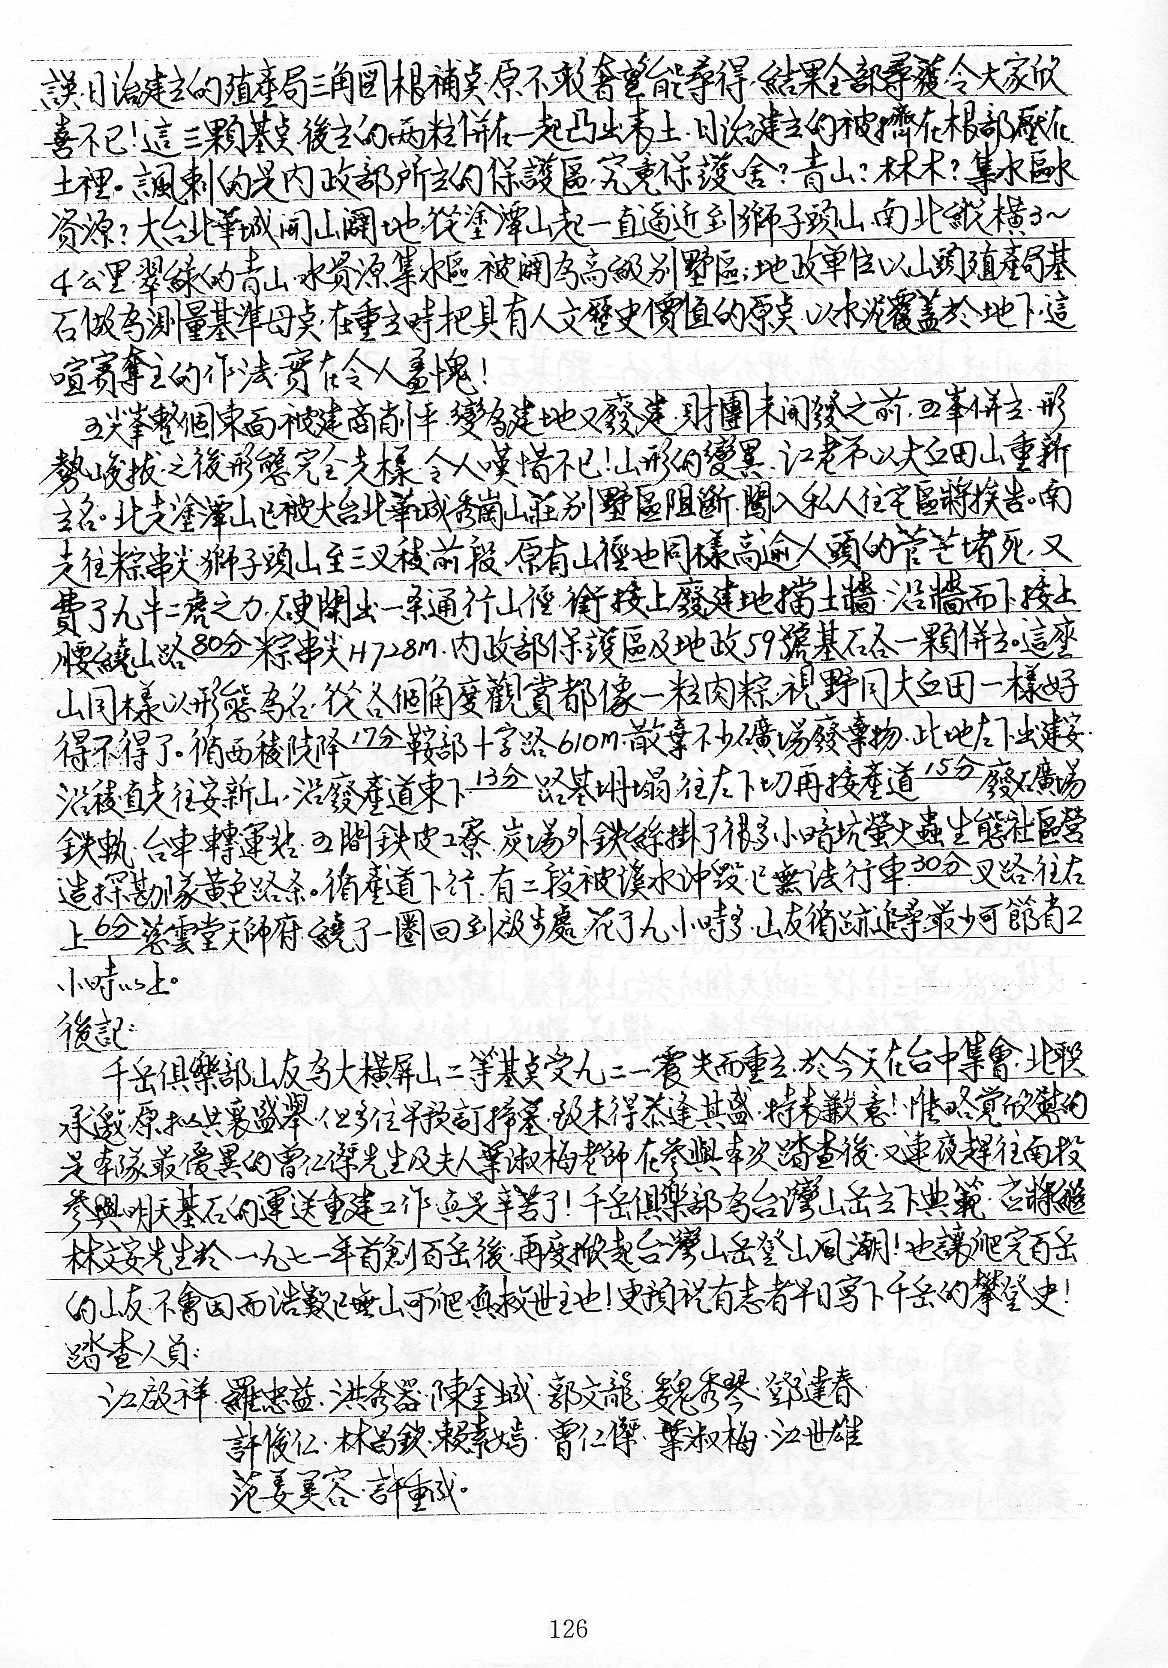 誤。日治建立的殖產局三角圖根補点,原不敢奢望能尋得,結果全部尋獲,令大家欣
喜不已!這三顆基点後立的两粒併在一起凸出表土,日治建立的被擠在根部壓在
土裡。諷刺的是內政部所立的保護區,究竟保護啥?青山?林木?集水區水
資源?大台北華城開山闢地,從塗潭山起一直逼近到獅子頭山,南北縱橫3~
4公里翠綠的青山,水資源集水區,被闢為高級別墅區;地政單位以山頭殖產局基
石做為測量基準母点,在重立時把具有人文歷史價值的原点,以水泥覆蓋於地下,這
喧賓奪主的作法,實在令人羞愧!
五尖峯整個東面被建商削平,變為建地又廢建,財團未開發之前,五峯併立,形
勢峻拔,之後形態完全走樣,令人嘆惜不已!山形的變異,江老弟以大丘田山重新
立名。北走塗潭山已被大台北華城秀崗山莊別墅區阻斷,闖入私人住宅區將挨告。南
走往粽串尖,獅子頭山至三叉稜,前段,原有山徑也同樣高逾人頭的菅芒堵死,又
費了九牛二虎之力,硬開出一条通行山徑,銜接上廢建地擋土牆,沿牆而下接上
腰繞山路80分粽串尖H728m,內政部保護區及地政59號基石各一顆併立。這座
山同樣以形態為名,從各個角度觀賞都像一粒肉粽,視野同大丘田一樣好
得不得了。循西稜陡降17分鞍部十字路610m,散棄不少礦場廢棄物,此地左下出建安,
沿稜直走往安新山,沿廢產道東下13分路基坍塌,往左下切再接產道15分廢石礦場
鉄軌,台車轉運站,五間鉄皮工寮,炭場外鉄絲掛了很多小暗坑螢火蟲生態社區營
造探勘隊黃色路条。循產道下行,有二段被溪水沖毀,已無法行車,30分叉路,往右
上6分慈雲堂天師府,繞了一圈回到啟步處,花了九小時多,山友循跡追尋,最少可節省2
小時以上。
後記:
千岳俱樂部山友為大橫屏山二等基点受九二一震失而重立,於今天在台中集會,北聯
承邀,原拟共襄盛舉,但多位早預訂掃墓,致未得恭逢其盛,特表歉意!唯略覺欣慰的
是本隊最優異的曾仁傑先生及夫人葉淑梅老師在參與本次踏查後,又連夜趕往南投
參與明天基石的運送重建工作,真是辛苦了!千岳俱樂部為台灣山岳立下典範,应將繼
林文安先生於一九七一年首創百岳後,再度掀起台灣山岳登山風潮!也讓爬完百岳
的山友,不會因而浩歎已無山可爬,真救世主也!更預祝有志者早日寫下千岳的攀登史!
踏查人員:
江啟祥.羅忠益.洪秀器.陳金城.郭文龍.魏秀琴.鄧達春
許俊仁.林昌欽.賴素嫣.曾仁傑.葉淑梅.江世雄
范姜美容.許重成。
126